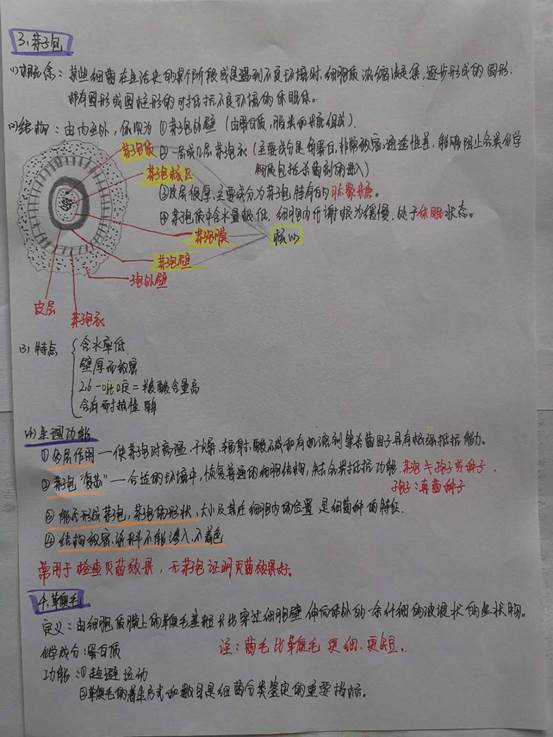 3、芽孢
(1)概念：某些细菌在生活史的某个阶段或是遇到不良环境时，细胞质浓缩凝集，逐步形成的圆形、
椭圆形或圆柱形的对抵抗不良环境的休眠体。
(2)结构：由内至外，依次为 ①芽孢外壁（由蛋白质，脂类和糖组成）
②一层或几层芽孢衣（主要成分是角蛋白，非常致密，通透性差，能够阻止各类化学
物质包括杀菌剂的进入）
③皮层很厚，主要成分为芽孢特有的肽聚糖。
④芽孢质中含水量极低，细胞内代谢极为缓慢，处于休眠状态。
芽孢质
芽孢核区
芽孢膜
核心
芽孢壁
孢外壁
皮层
芽孢衣
(3)特点
含水率低
壁厚而致密
2,6-吡啶=羧酸含量高
含有耐热性酶
(4)生理功能
①的层作用一使芽孢对高温、干燥、辐射、酸、碱和有机溶剂等杀菌因子具有极强抵抗能力。
②芽孢"复苏"一合适的环境中，恢复普通的细胞结构，解除各类抵抗功能。芽孢≠孢子或种子
孢子：真菌种子
③能否形成芽孢，芽孢的形状、大小及其在细胞内的位置是细菌种的特征
④结构致密，染料不能渗入，不着色
常用于检查灭菌效果，无芽孢证明灭菌效果好。
4.鞭毛
定义：由细胞质膜上的鞭毛基粒长出穿过细胞壁伸向体外的一条纤细的波浪状的丝状物。
化学成分：蛋白质
注：菌毛比鞭毛更细、更短。
功能：①趋避运动
②鞭毛的着生方式和数目是细菌分类鉴定的重要指标。